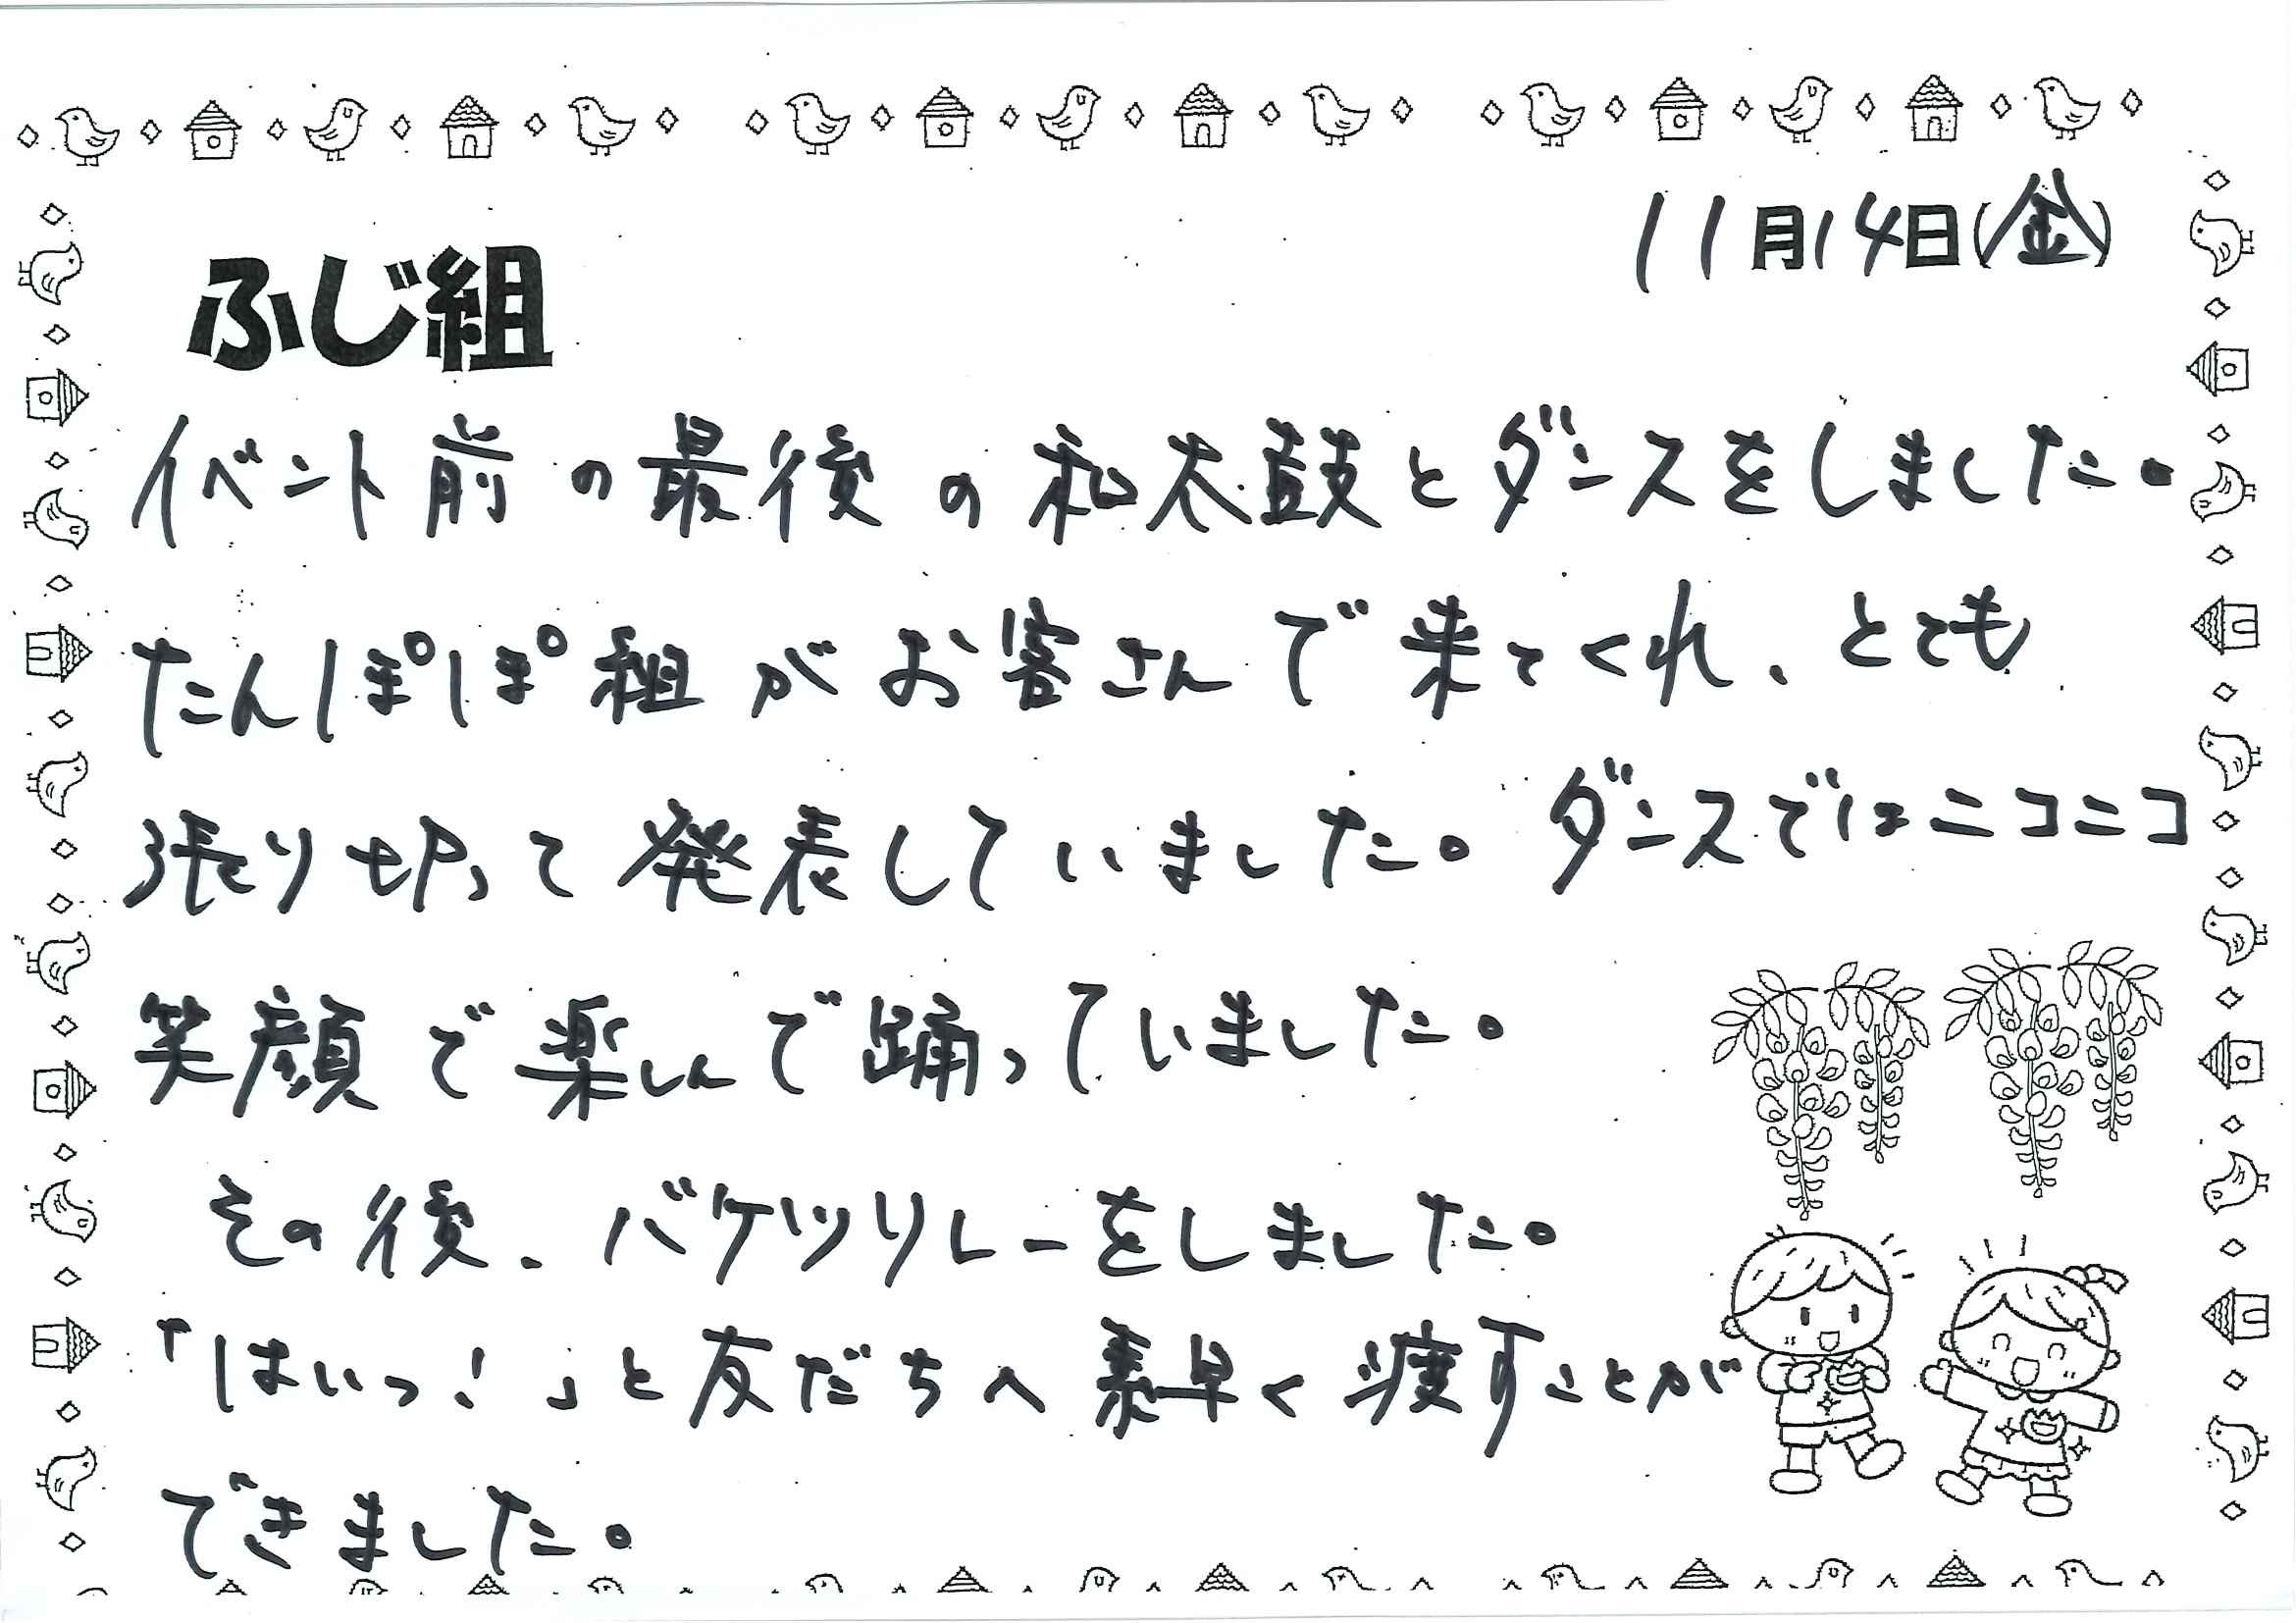 11月14日(金)
ふじ組
イベント前の最後の和太鼓とダンスをしました。
たんぽぽ組がお客さんで来てくれ、とても
張り切って発表していました。ダンスではニコニコ
笑顔で楽しんで踊っていました。
その後、バケツリレーをしました。
「はいっ!」と友だちへ素早く渡すことが
できました。